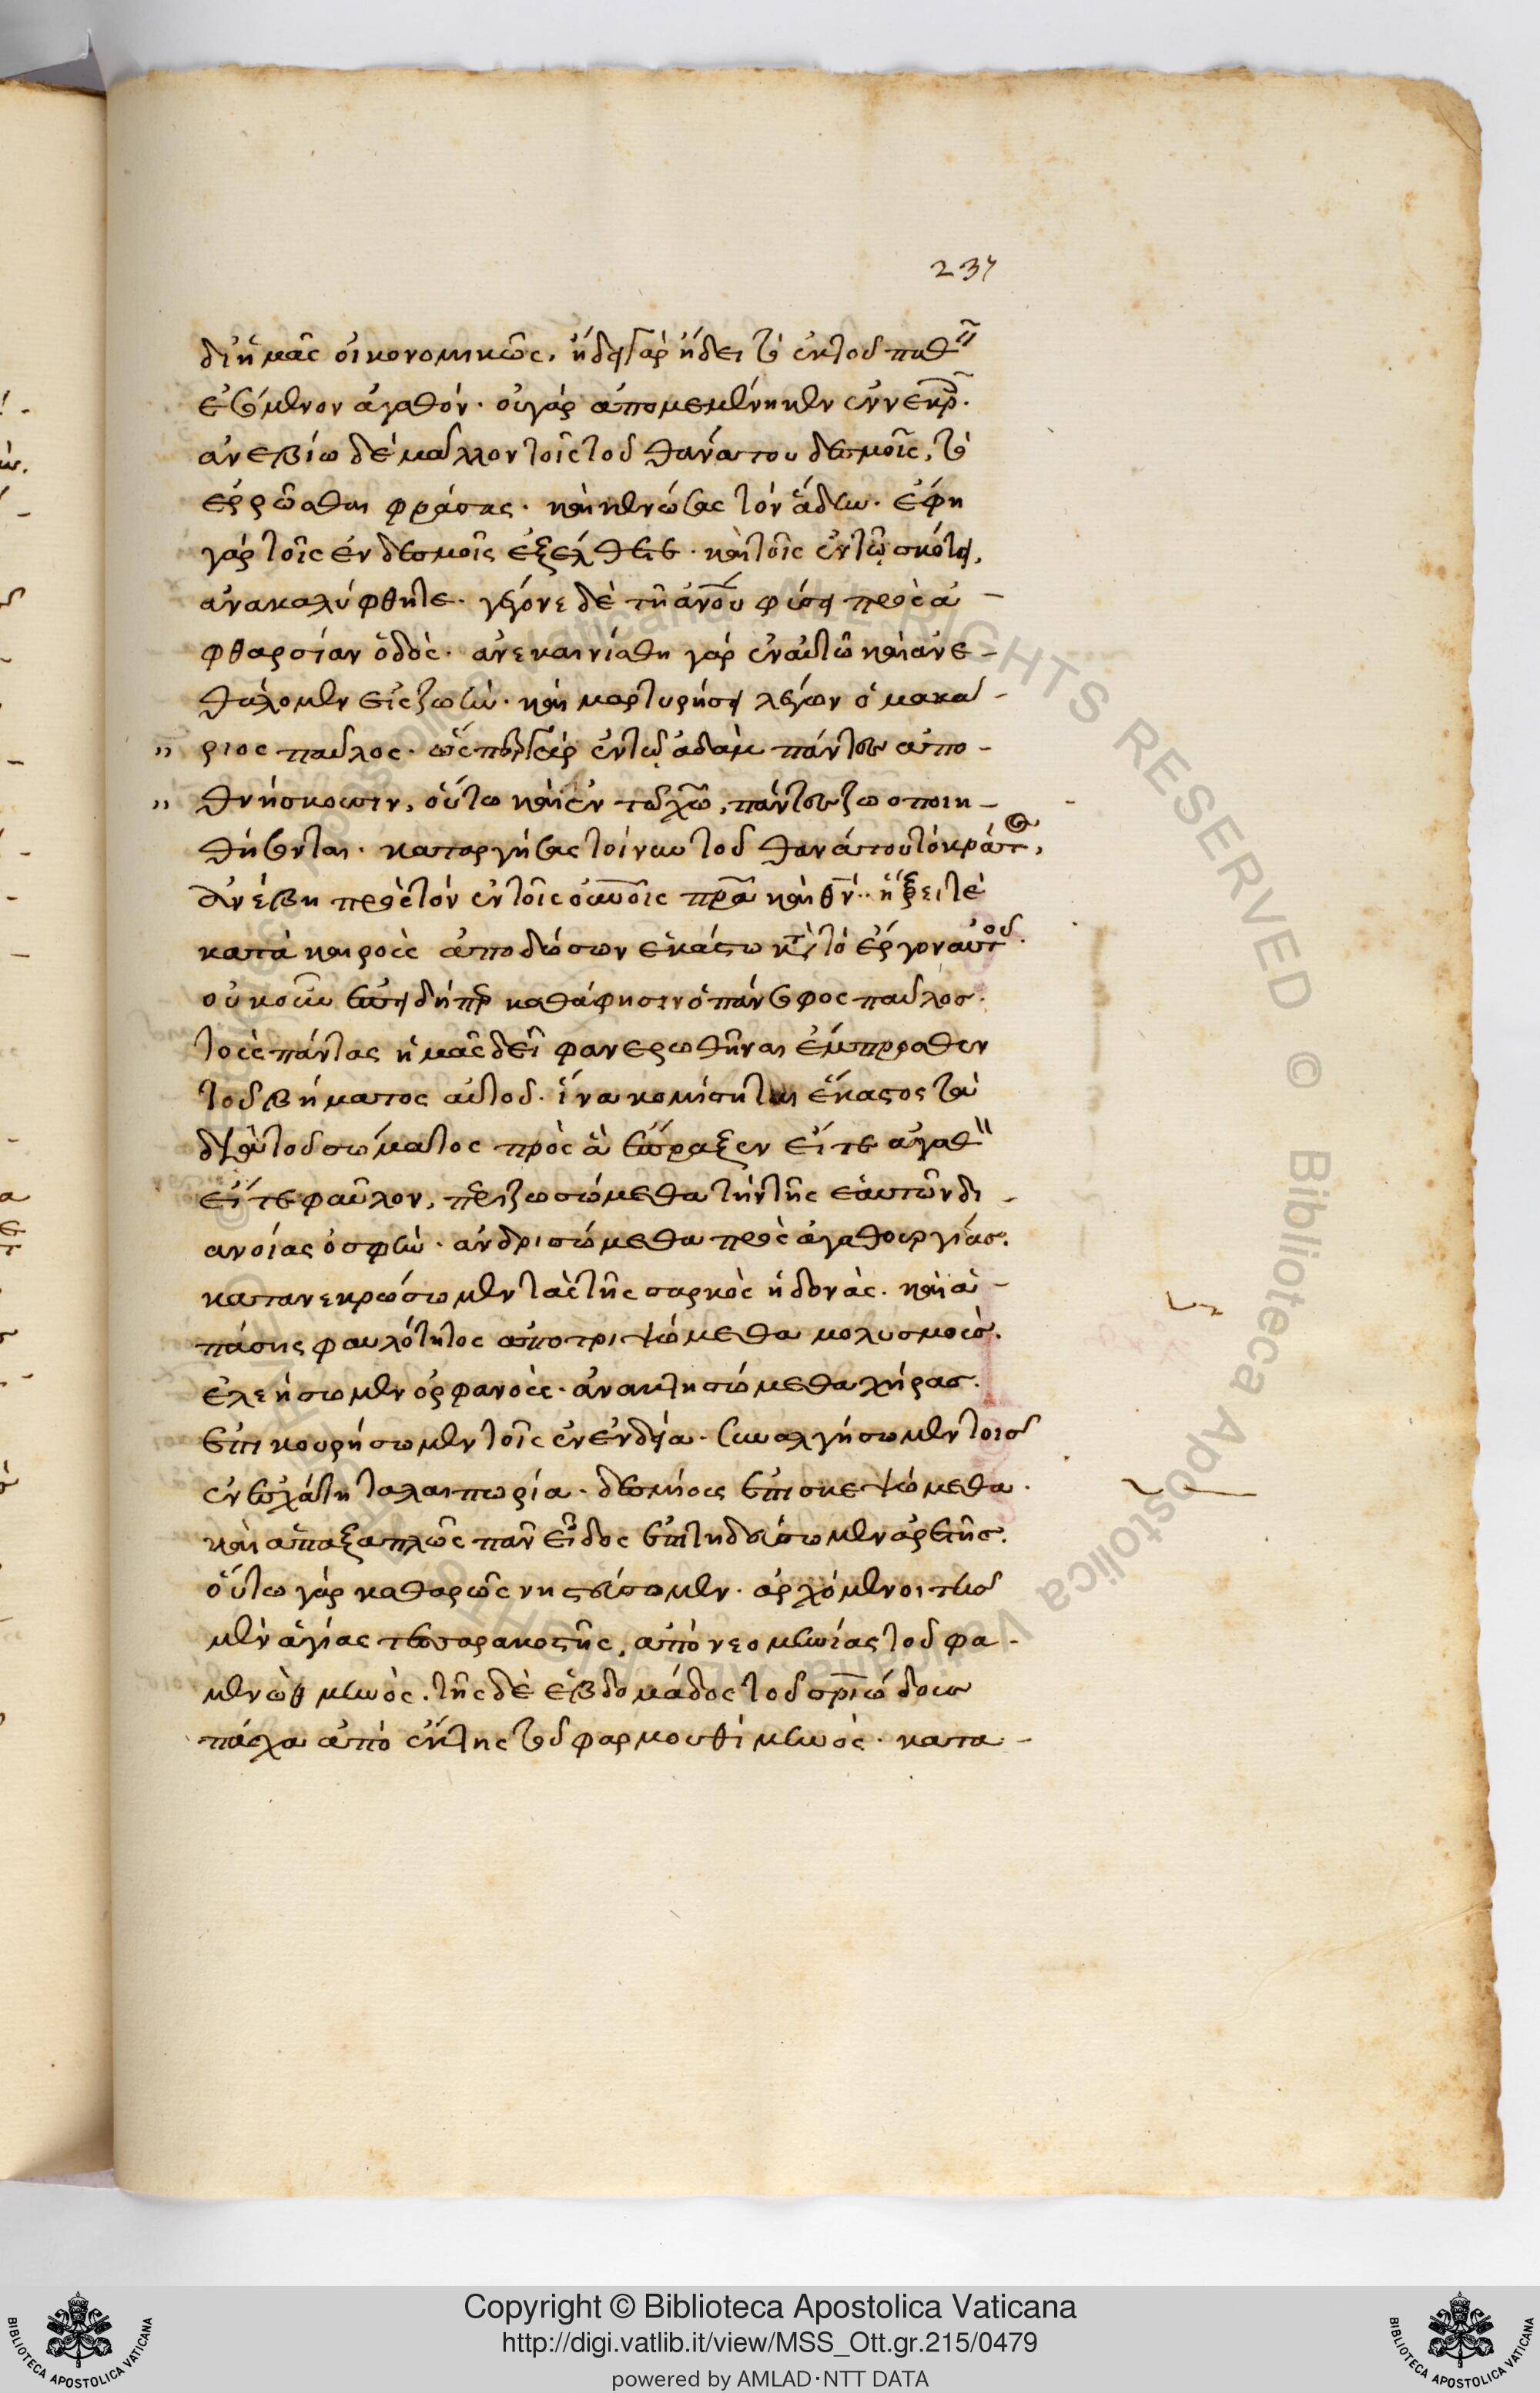 237
δι ἡμᾶς οἰκονομικῶς. ᾔδει γὰρ ᾔδει τὸ ἐκ τοῦ παθεῖν
ἐσόμενον ἀγαθόν. οὐ γὰρ ἀπομεμένηκεν ἐν νεκροῖς.
ἀνεβίω δὲ μᾶλλον τοῖς τοῦ θανάτου δεσμοῖς, τὸ
ἐρρῶσθαι φράσας. καὶ κενώσας τὸν ἅδην. ἔφη
γὰρ τοῖς ἐν δεσμοῖς ἐξέλθετε. καὶ τοῖς ἐν τῷ σκότει,
ἀνακαλύφθητε. γέγονε δὲ τῇ ἀνου φύσει πρὸς ἀ-
φθαρσίαν ὁδὸς. ἀνεκαινίσθη γὰρ ἐν αὐτῶ καὶ ἀνε-
θάλομεν εἰς ζωὴν. καὶ μαρτυρήσει λέγων ὁ μακά-
" ριος παῦλος. ὥσπερ γὰρ ἐν τῷ ἀδὰμ πάντες ἀπο-
" θνήσκουσιν, οὕτω καὶ ἐν τῶ χῶ, πάντες ζωοποιη-
θήσονται. καταργήσας τοίνυν τοῦ θανάτου τὸ κράτος,
ἀνέβη πρὸς τὸν ἐν τοῖς οὐνοῖς πρα καὶ θν. ἥξει τὲ
κατὰ καιροὺς ἀποδώσων ἑκάστω κατὰ τὸ ἔργον αὐτοῦ.
οὐκοῦν ἐπειδήπερ καθά φησιν ὁ πάνσοφος παῦλος.
τοὺς πάντας ἡμᾶς δεῖ φανερωθῆναι ἔμπροσθεν
τοῦ βήματος αὐτοῦ. ἵνα κομίσηται ἕκαστος τὰ
διὰ τοῦ σώματος πρὸς ἃ ἔπραξεν εἴτε ἀγαθὸν
εἴτε φαῦλον, περιζωσώμεθα τὴν τῆς ἑαυτῶν δι-
ανοίας ὀσφὺν. ἀνδρισώμεθα πρὸς ἀγαθουργίας.
κατανεκρώσωμεν τὰς τῆς σαρκὸς ἡδονάς. καὶ ἁ-
πάσης φαυλότητος ἀποτριψώμεθα μολυσμοὺς.
ἐλεήσωμεν ὀρφανοὺς. ἀνακτησώμεθα χήρας.
ἐπικουρήσωμεν τοῖς ἐν ἐνδείᾳ. συναλγήσωμεν τοῖς
ἐν ἐσχάτῃ ταλαιπωρίᾳ. δεσμίους ἐπισκεψώμεθα.
καὶ ἁπαξαπλῶς πᾶν εἶδος ἐπιτηδεύσωμεν ἀρετῆς.
οὕτω γὰρ καθαρῶς νηστεύσομεν. ἀρχόμενοι τῆς
μὲν ἁγίας τεσσαρακοστῆς, ἀπὸ νεομηνίας τοῦ φα-
μενὼθ μηνὸς. τῆς δὲ ἑβδομάδος τοῦ σριώδους
πάσχα ἀπὸ ἕκτης τοῦ φαρμουθὶ μηνὸς. κατα-
Copyright © Biblioteca Apostolica Vaticana
http://digi.vatlib.it/view/MSS_Ott.gr.215/0479
powered by AMLAD·NTT DATA